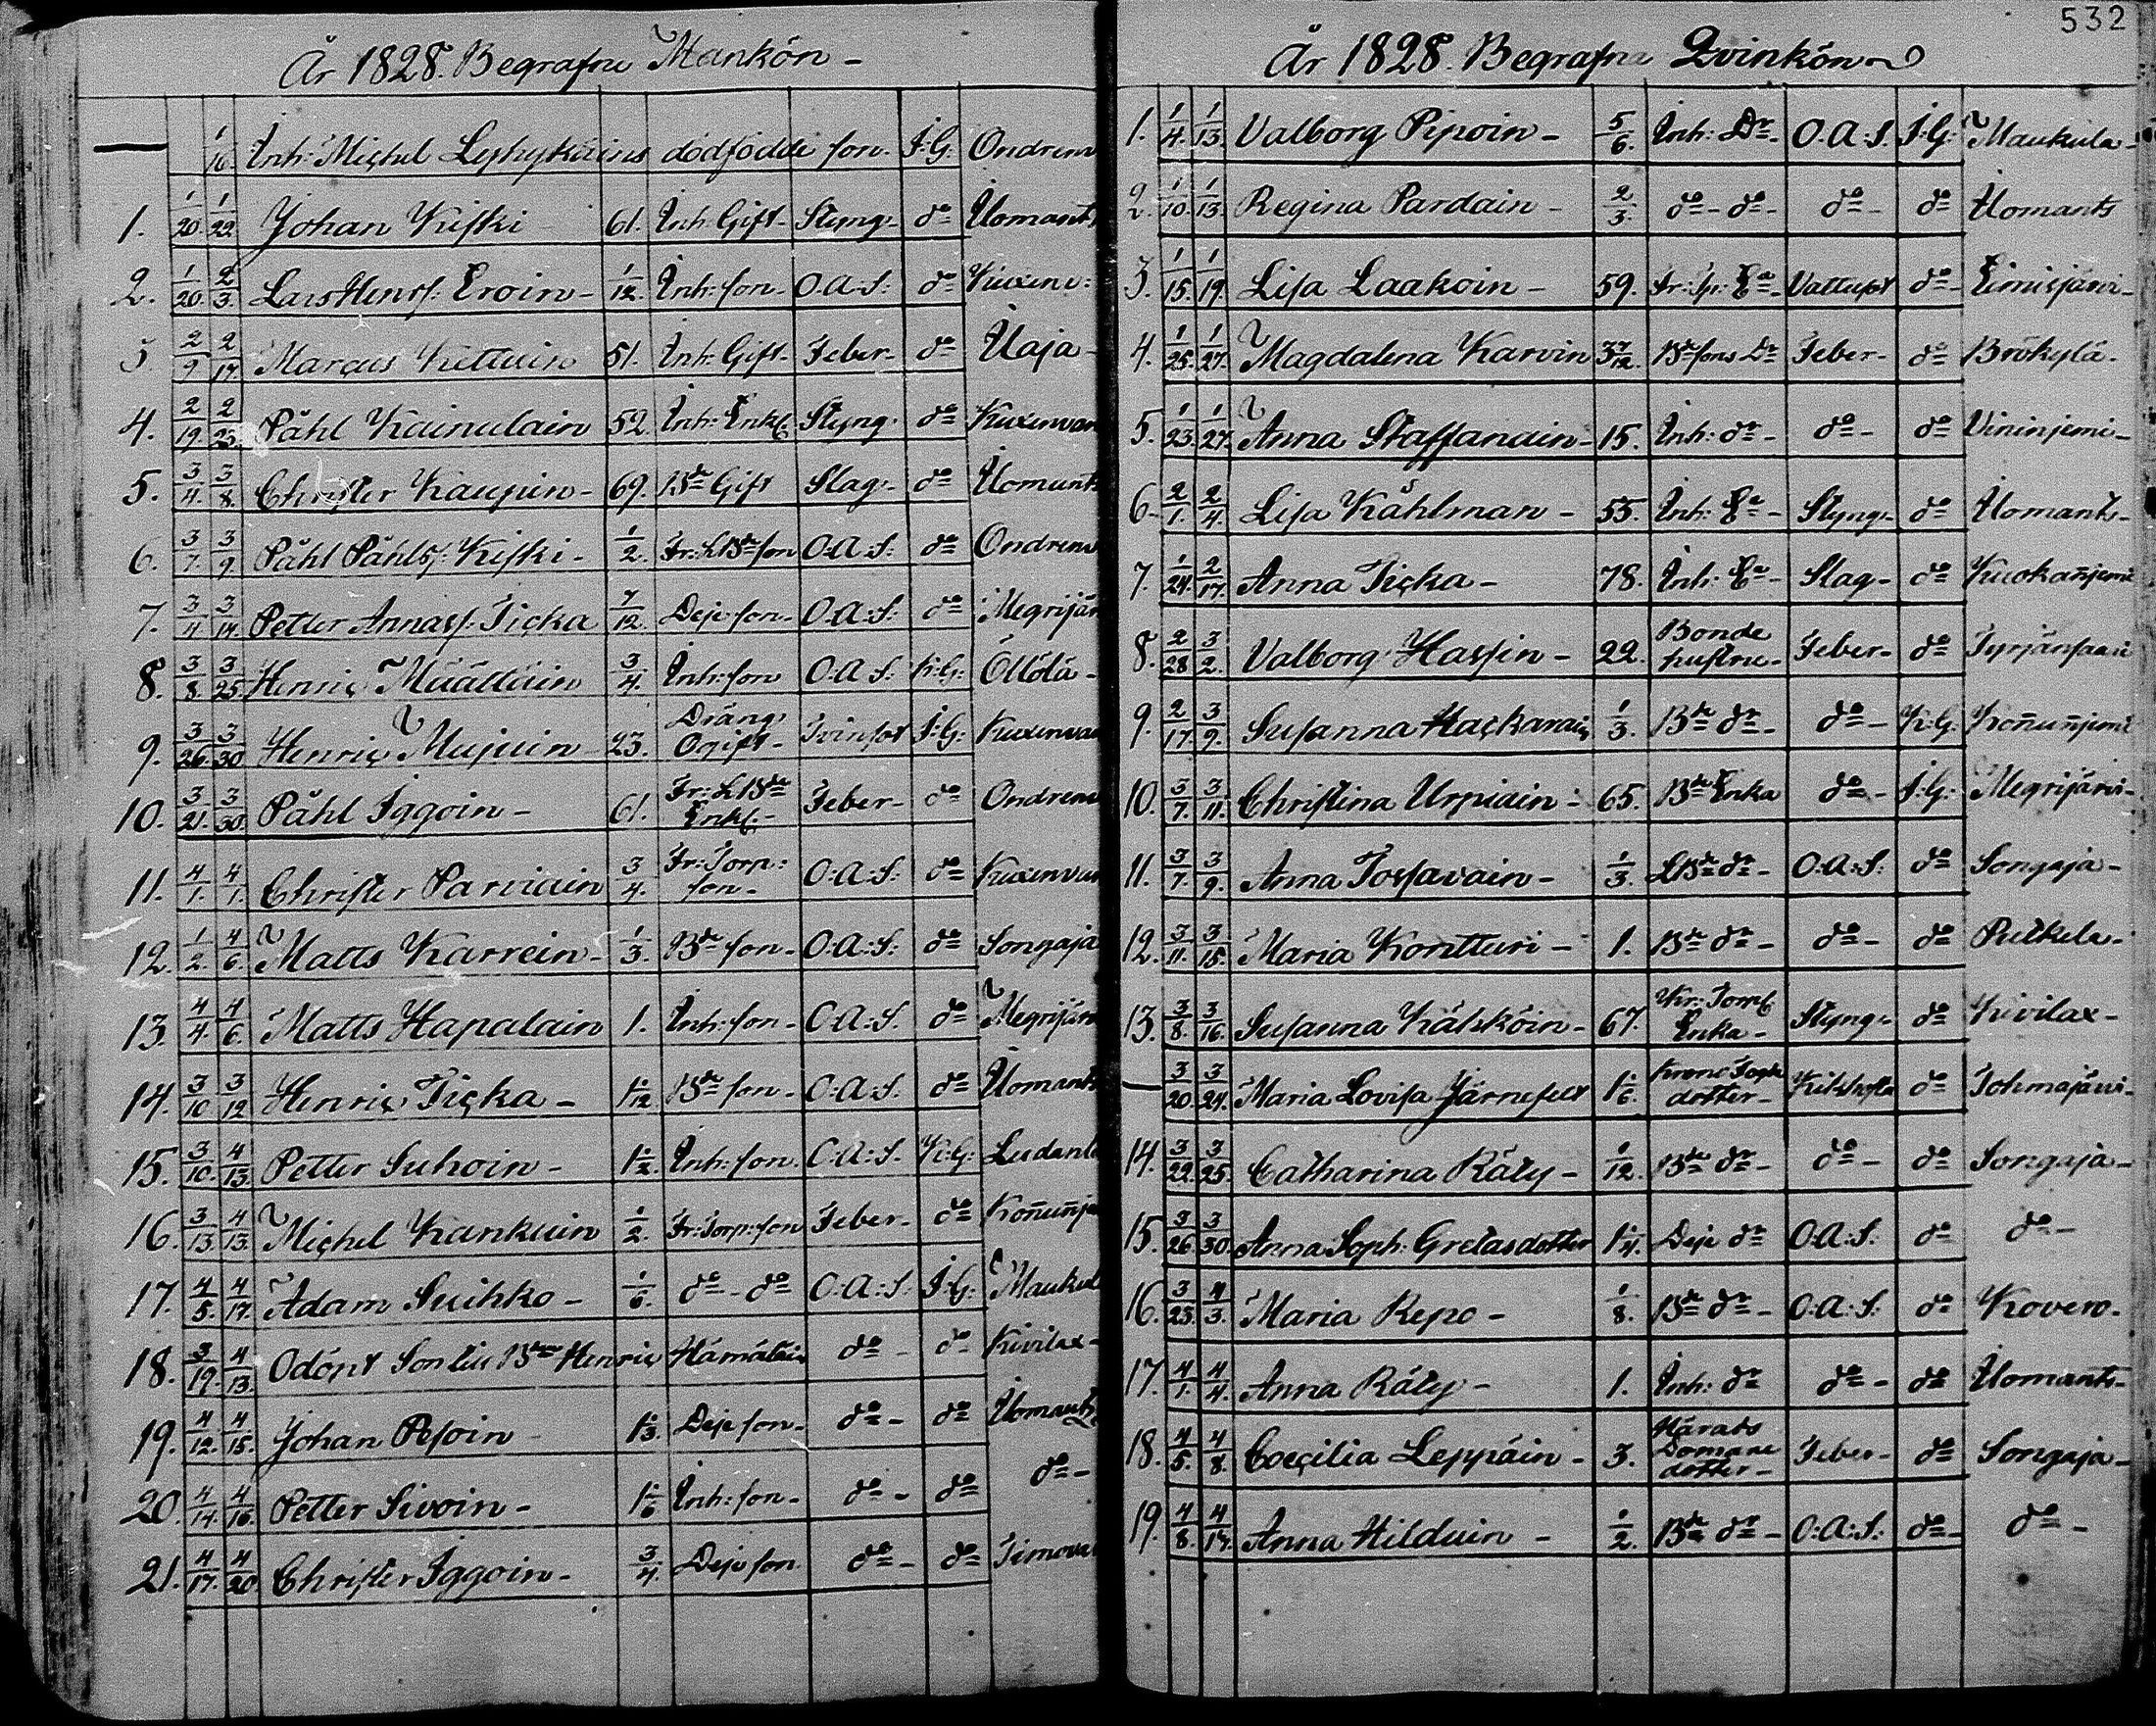 532
År 1828. Begrafne Mankön -
1/16. Inh: Michel Lyhykäins dödfödde son. I:G: Ondren
1. 1/20. 1/22. Johan Kiſki 61. Inh: Gift- Styng- do Ilomants
2. 1/20. 2/3. Lars Henrſ: Eroin- 1/12. Inh: son- O:A:S: do Kuxenv:
3. 2/9. 2/17. Marcus Kettuin 51. Inh: Gift- Feber- do Uaja-
4. 2/19. 2/25. Påhl Kainulain 52. Inh: Enkl: Styng- do Kuxenvar
5. 3/4. 3/8. Chriſter Kaupin- 69. Bde Gift Slag- do Ilomants
6. 3/7. 3/9. Påhl Påhlſ: Kiſki- 1/2. Fr: LBde son O:A:S: do Ondren
7. 3/4 3/14. Petter Annaſ: Ticka 7/12. Deje son- O:A:S: do Megrijär
8. 3/8. 3/25. Henric Määttäin 3/4. Inh: son O:A:S: K:G: Öllölä-
9. 3/26. 3/30 Henric Mujuin 23. Dräng Ogift- Tvinsot I:G: Kuxenvar
10. 3/21. 3/30. Påhl Iggoin- 61. Fr: LBde Enkl:- Feber- do Ondren
11. 4/1. 4/1. Chriſter Parviain 3/4. Fr: Torp: son- O:A:S: do Kuxenvar
12. 1/2. 4/6. Matts Karrein- 1/3. Bde son- O:A:S: do Songaja
13. 4/4. 4/6. Matts Hapalain 1. Inh: son- O:A:S. do Megrijär
14. 3/10 3/12 Henric Ticka- 1 1/12 Bde son- O:A:S. do Ilomants
15. 3/10. 4/13. Petter Suhoin- 1 1/2. Inh: son. O:A:S. K:G: Ludant
16. 3/13. 4/13. Michel Kankuin 1/2. Fr: Torp: son Feber- do Koñuñje
17. 4/5. 4/17. Adam Suihko- 1/6. do- do O:A:S. I:G: Maukul
18. 3/19. 4/13. Odöpt Son till Bden Henric Hämäläin do- do Kivilax-
19. 4/12. 4/15. Johan Peſoin 1 1/3. Deje son- do- do Ilomants
20. 4/14. 4/16. Petter Sivoin- 1 1/6 Inh: son- do- do do-
21. 4/17. 4/20. Chriſter Iggoin- 3/4. Deje son do- do Timova
År 1828. Begrafne Qvinkön
1. 1/4. 1/13. Valborg Pipoin- 5/6. Inh: Dr- O:A:S. I:G: Maukula-
2. 1/10. 1/13. Regina Pardain- 2/3. do- do- do- do Ilomants
3. 1/15. 1/19. Liſa Laakoin- 59. Fr: Tp: Ea- Vattusot do- Eimisjärvi-
4. 1/25. 1/27. Magdalena Karvin 3 7/12. Bde sons Dr Feber- do Brökylä-
5. 1/23. 1/27. Anna Staffanain- 15. Inh: dr- do- do Vininjemi-
6. 2/1. 2/4. Liſa Kåhlman- 55. Inh: Ea- Styng- do Ilomants-
7. 1/24. 2/17. Anna Ticka- 78. Inh: Ea- Slag- do Kuokañjemi
8. 2/28 3/2. Valborg Haſſin- 22. Bonde hustru- Feber- do Tyrjänsaari
9. 2/17. 3/9. Suſanna Hackarain 1/3. Bde dr- do- K:G: Koñuñjemi
10. 3/7. 3/11. Chriſtina Urpiain- 65. Bde Enka do- I:G: Megrijärvi-
11. 3/7. 3/9. Anna Toſſavain- 1/3. LBde dr- O:A:S: do Songaja-
12. 3/11. 3/15. Maria Kontturi- 1. Bde dr- do- do Putkela-
13. 3/8. 3/16. Suſanna Kätsköin- 67. Kr: Torp: Enka- Styng- do Kivilax-
3/20. 3/24. Maria Loviſa Järnefelt 1 1/6. Krono Fogde dotter- Kikhosta do Tohmajärvi-
14. 3/22. 3/25. Catharina Räty- 1/12. Bde dr- do- do Songaja-
15. 3/26. 3/30. Anna Soph: Gretasdotter 1 1/4. Deje dr O:A:S: do do-
16. 3/23. 4/3. Maria Repo- 1/8. Bde dr- O:A:S: do Kovero-
17. 4/1. 4/4. Anna Räty- 1. Inh: dr do- do Ilomants-
18. 4/5. 4/8. Coecilia Leppäin- 3. Härads Domare dotter- Feber- do Songaja-
19. 4/8. 4/17. Anna Hilduin- 1/2. Bde dr- O:A:S: do- do-